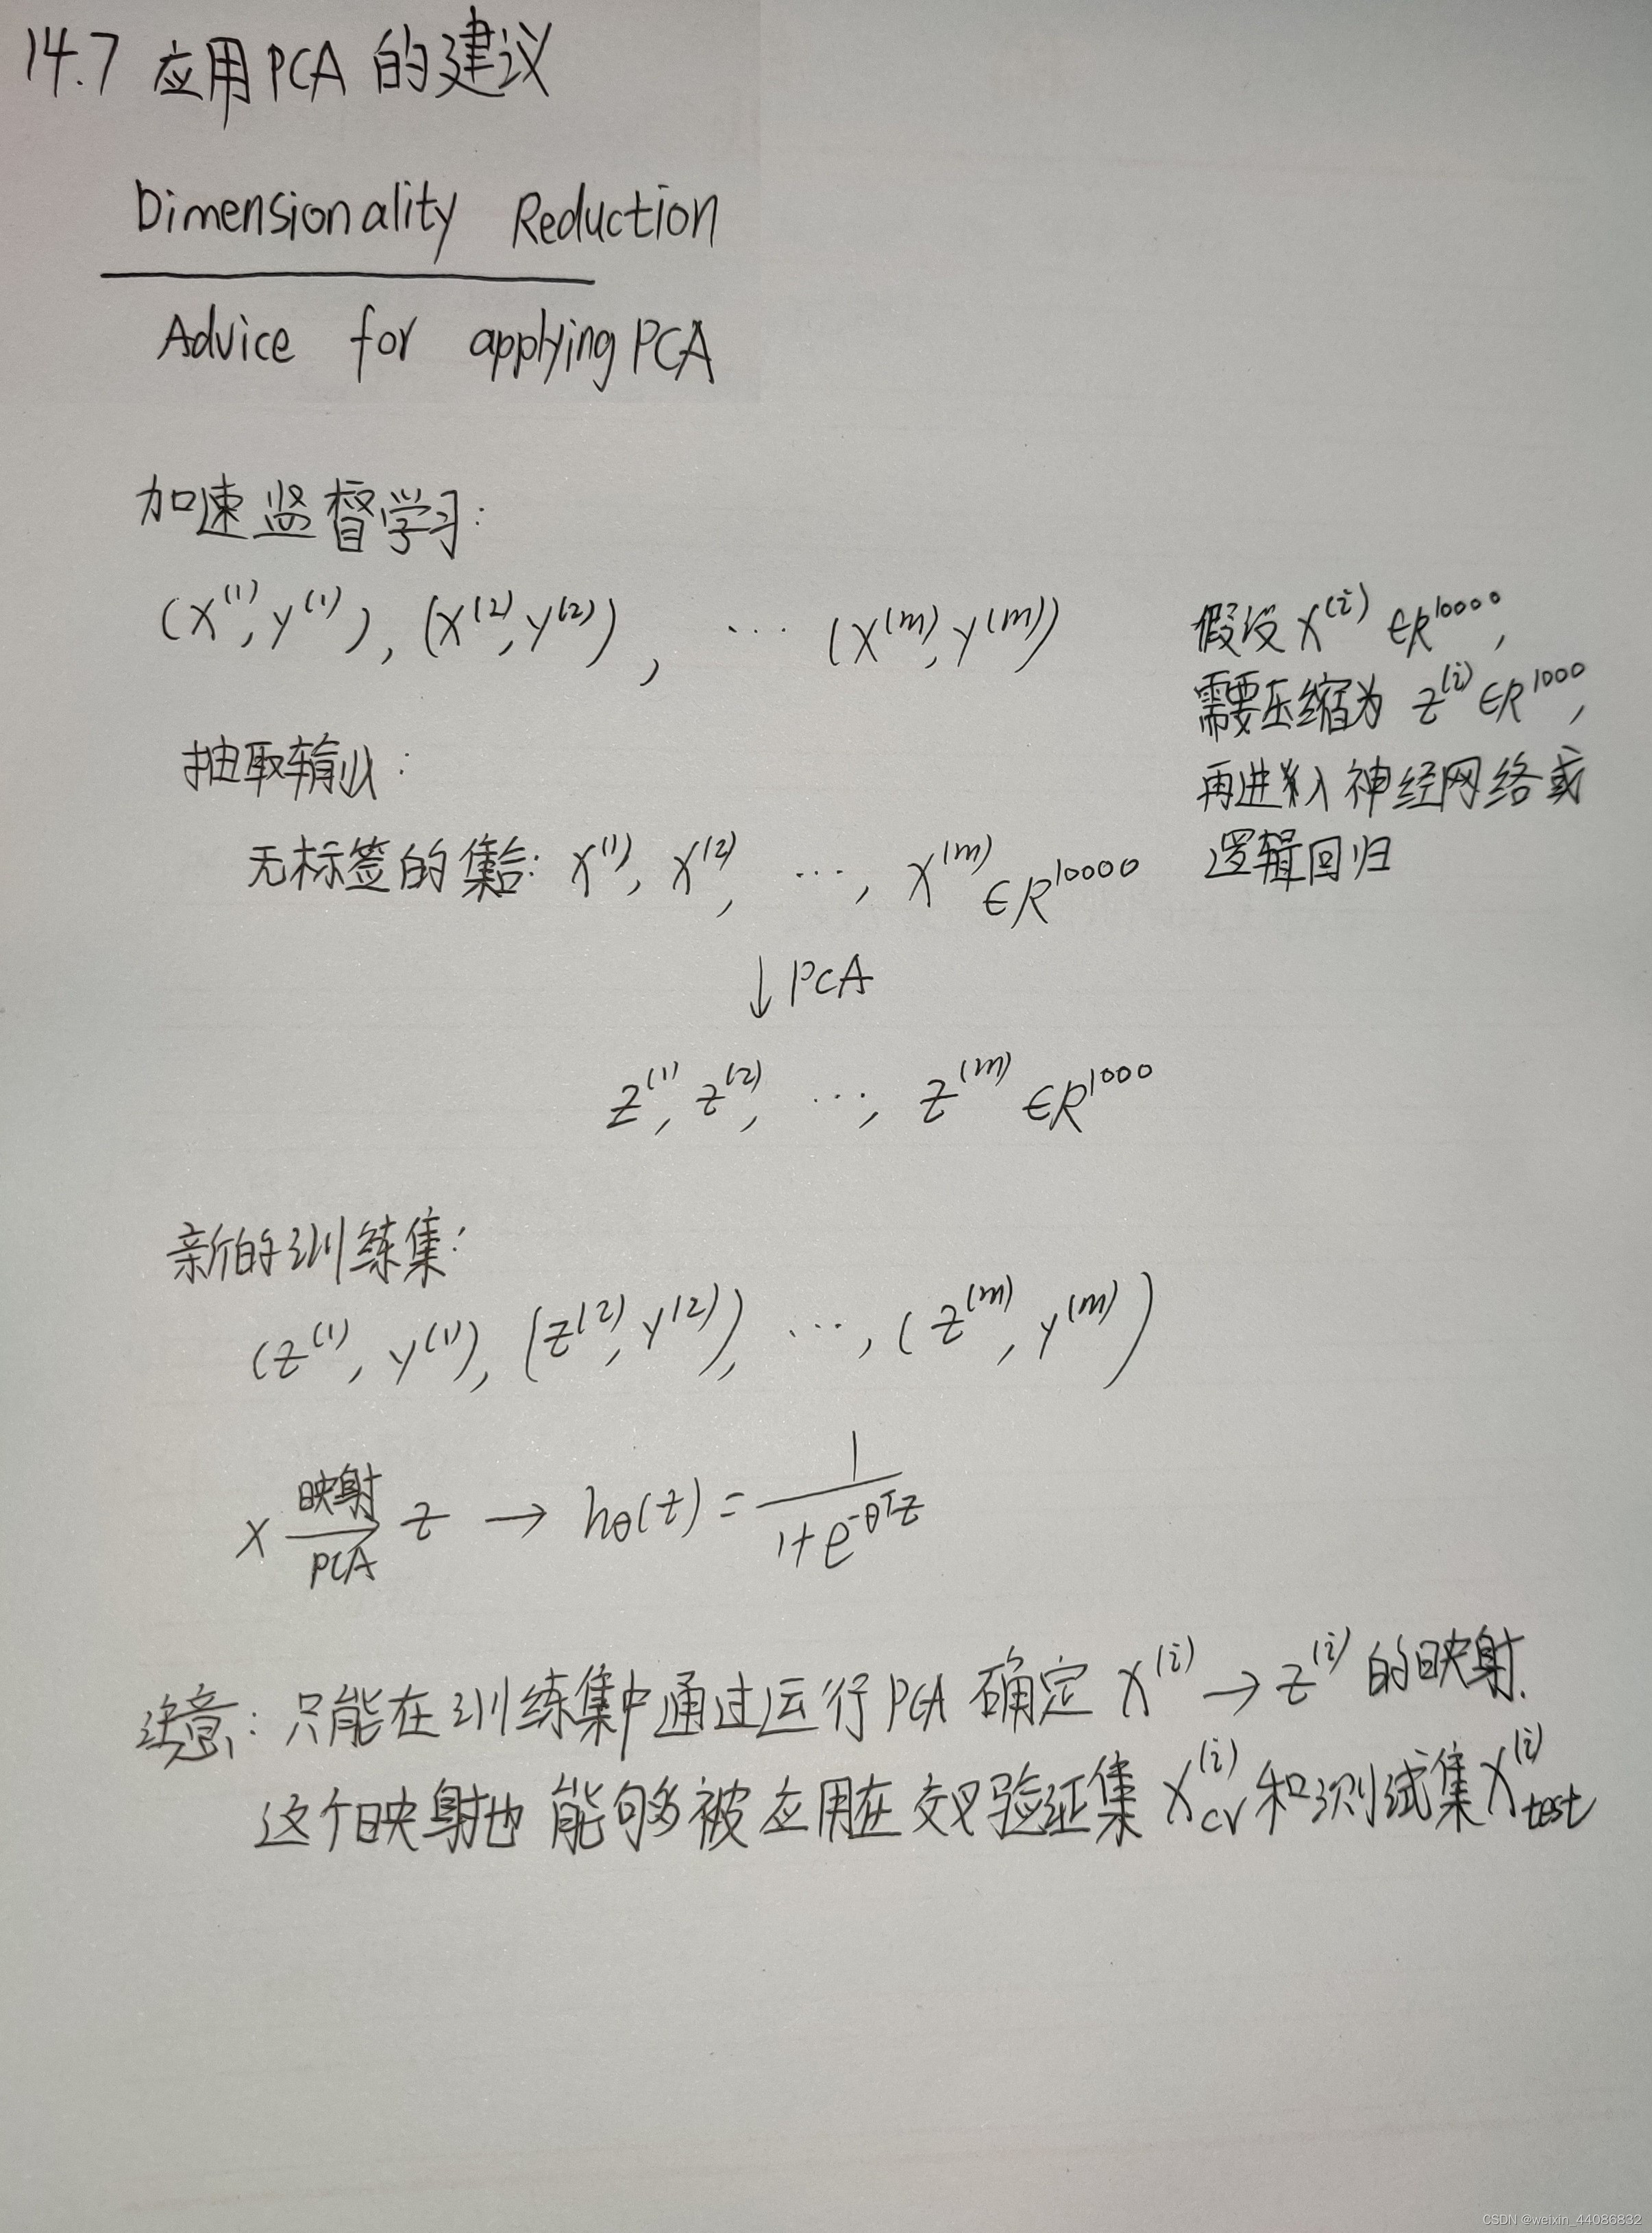 14.7 应用PCA的建议
Dimensionality Reduction
Advice for applying PCA
加速监督学习:
(x^(1), y^(1)), (x^(2), y^(2)), ... (x^(m), y^(m))
假设 x^(i) ∈R^10000,
需要压缩为 z^(i) ∈R^1000,
再进入神经网络或
逻辑回归
抽取输以:
无标签的集合: x^(1), x^(2), ..., x^(m) ∈R^10000
↓ PCA
z^(1), z^(2), ..., z^(m) ∈R^1000
新的训练集:
(z^(1), y^(1)), (z^(2), y^(2)), ..., (z^(m), y^(m))
映射
x → z → hθ(z) = 1/(1+e^(-θ^T z))
PCA
注意: 只能在训练集中通过运行PCA确定 x^(i) → z^(i) 的映射.
这个映射也能够被应用在交叉验证集 x_cv^(i) 和测试集 x_test^(i)
CSDN @weixin_44086832